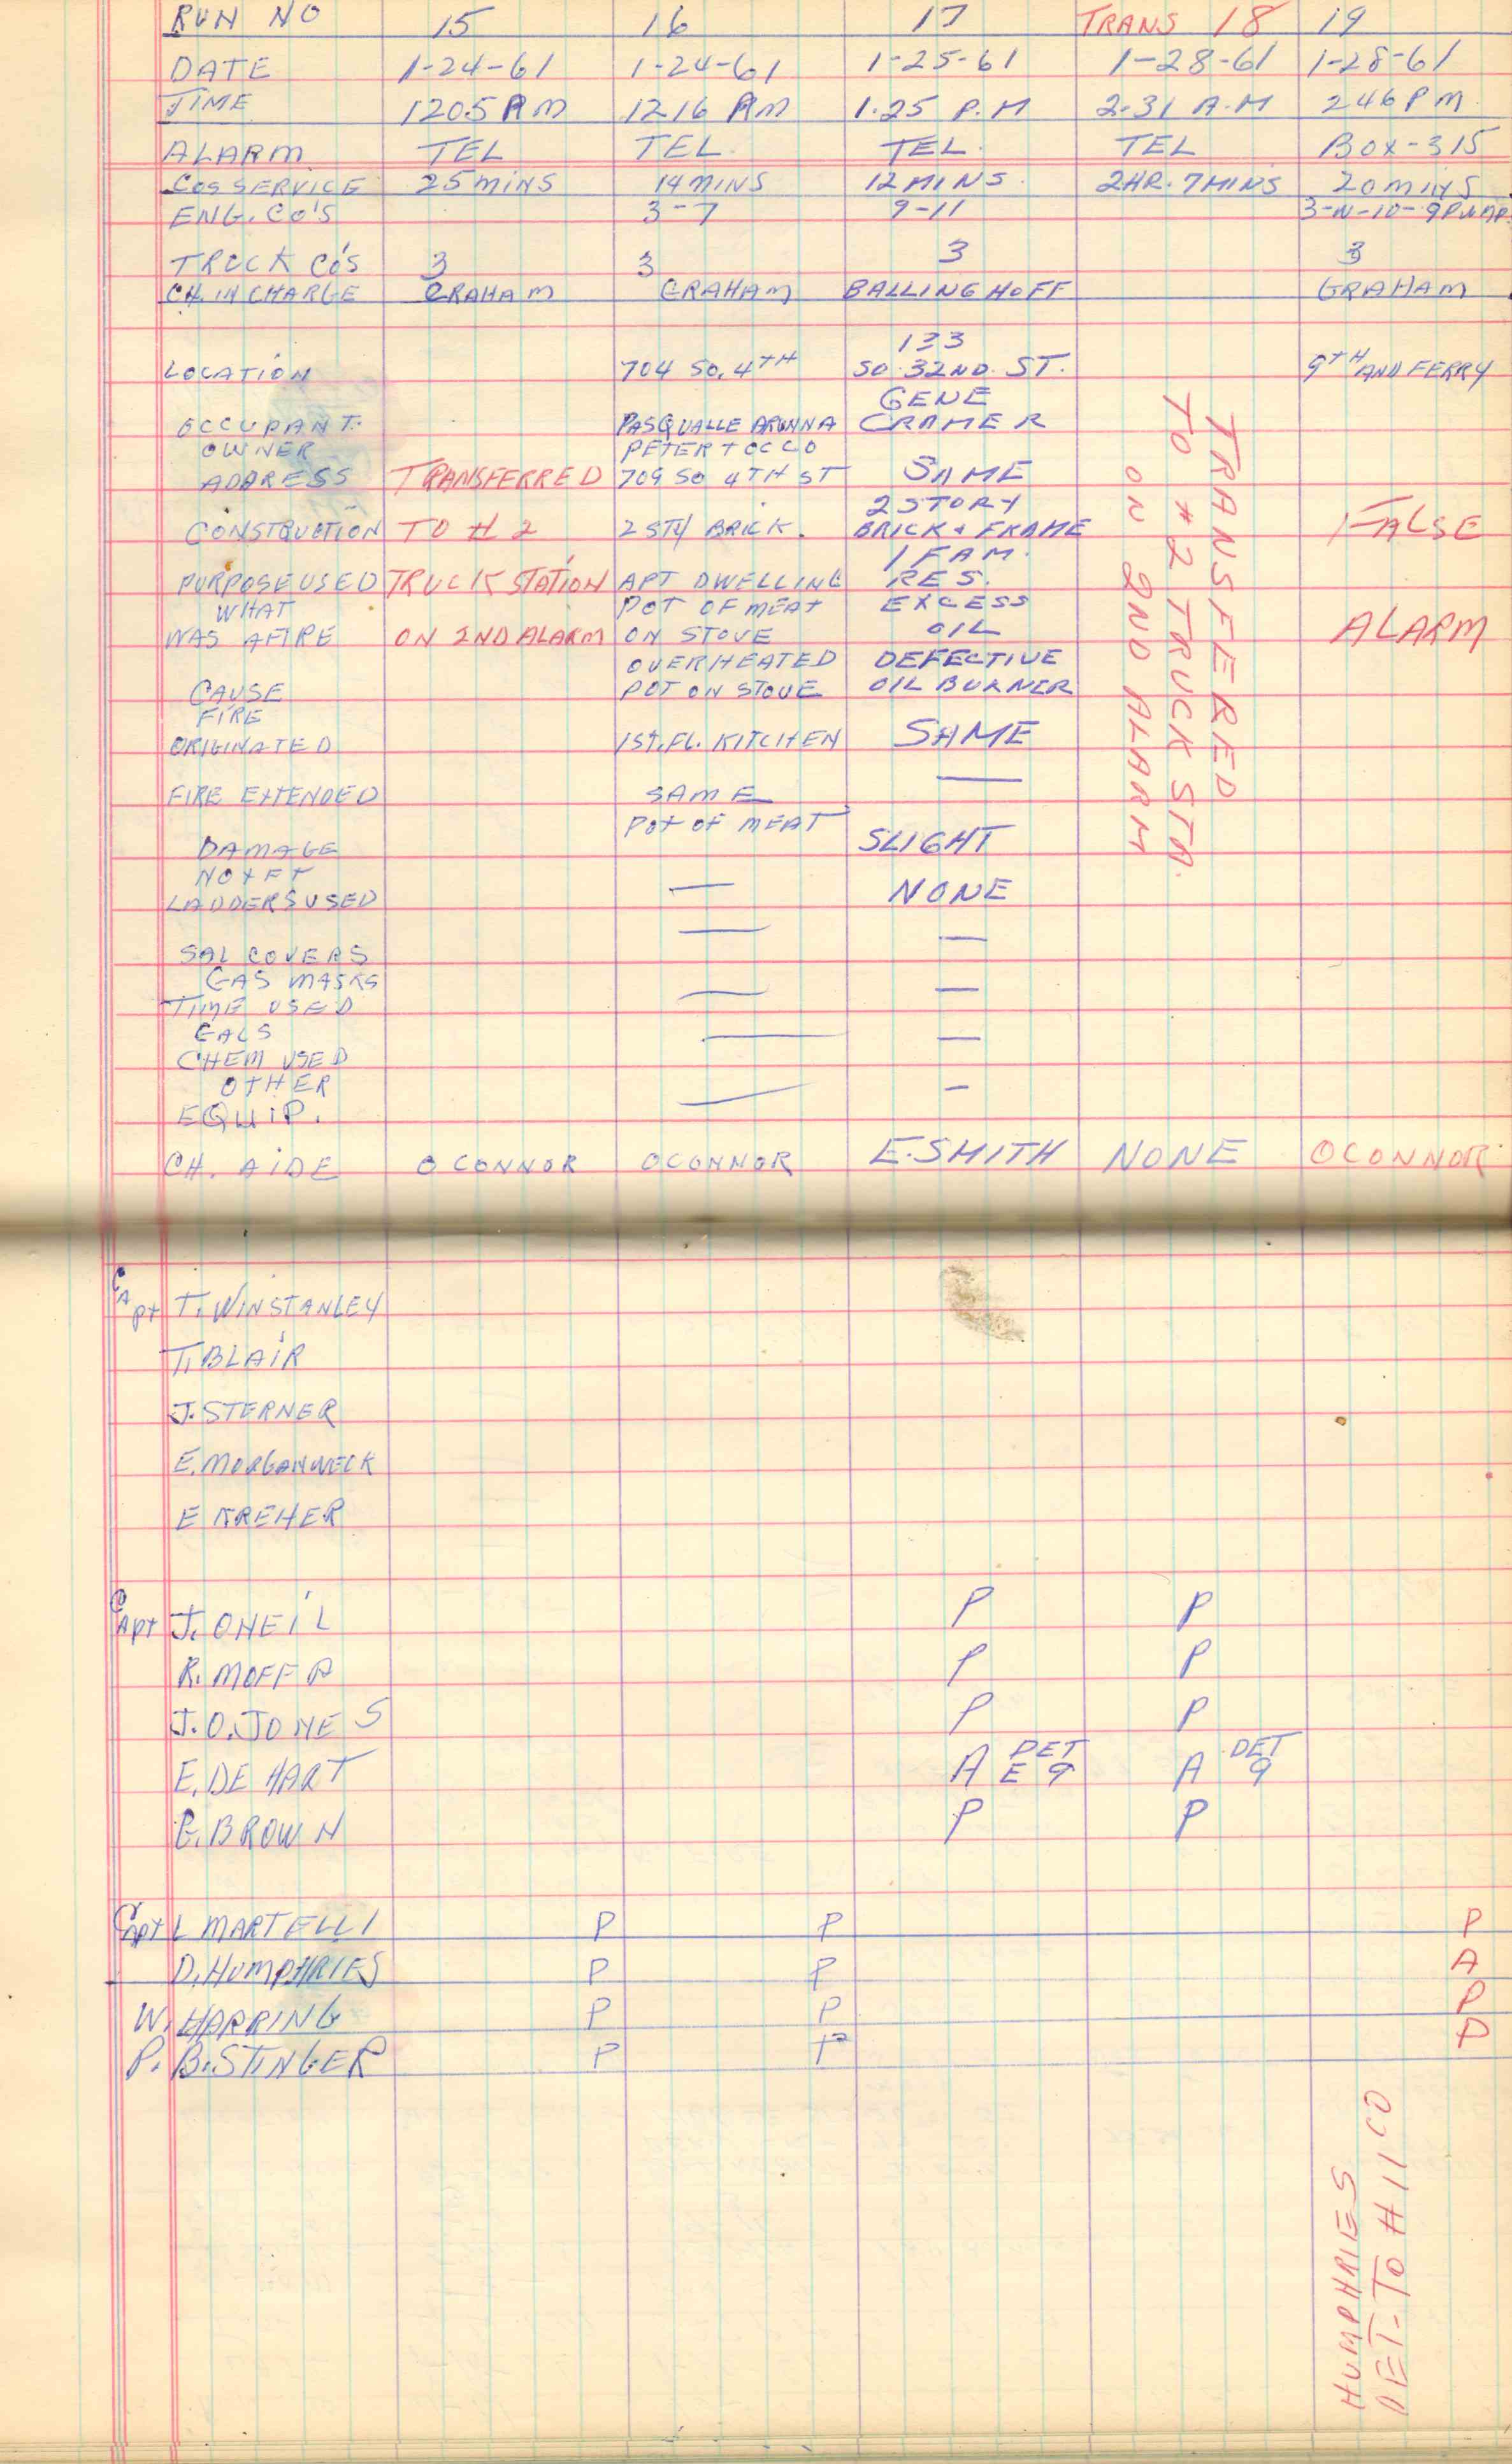 RUN NO 15 16 17 TRANS 18 19
DATE 1-24-61 1-24-61 1-25-61 1-28-61 1-28-61
TIME 1205 AM 1216 AM 1.25 P.M 2.31 A.M 246 PM
ALARM TEL TEL. TEL. TEL BOX-315
COS SERVICE 25 MINS 14 MINS 12 MINS. 2HR. 7MINS 20 MINS
ENG. CO'S 3-7 9-11
TRUCK CO'S 3 3 3 3
CH. IN CHARGE GRAHAM GRAHAM BALLINGHOFF GRAHAM
133
LOCATION 704 SO. 4TH SO. 32ND. ST. 9TH AND FERRY
GENE
OCCUPANT. PASQUALLE ARUNNA CRAMER
OWNER PETER TOCCO
ADDRESS TRANSFERRED 709 SO 4TH ST SAME
2 STORY
CONSTRUCTION TO # 2 2 STY BRICK. BRICK & FRAME FALSE
1 FAM.
PURPOSE USED TRUCK STATION APT DWELLING RES.
WHAT POT OF MEAT EXCESS
WAS AFIRE ON 2ND ALARM ON STOVE OIL ALARM
OVERHEATED DEFECTIVE
CAUSE POT ON STOVE OIL BURNER
FIRE
ORIGINATED 1ST. FL. KITCHEN SAME
FIRE EXTENDED SAME —
POT OF MEAT
DAMAGE SLIGHT
NO & FT
LADDERS USED — NONE
TRANSFERED
TO #2 TRUCK STA.
ON 2ND ALARM
SAL COVERS — —
GAS MASKS
TIME USED — —
GALS
CHEM USED — —
OTHER
EQUIP. — —
CH. AIDE O CONNOR OCONNOR E. SMITH NONE OCONNOR
CAPT T. WINSTANLEY
T. BLAIR
J. STERNER
E. MORGANWECK
E KREHER
CAPT J. ONEIL P P
R. MOFFA P P
J.O. JONES P P
E. DE HART A DET E 9 A DET 9
E. BROWN P P
CAPT L MARTELLI P P P
D. HUMPHRIES P P A
W. HARRING P P P
P. B. STINGER P P P
HUMPHRIES
DET- TO # 11 CO